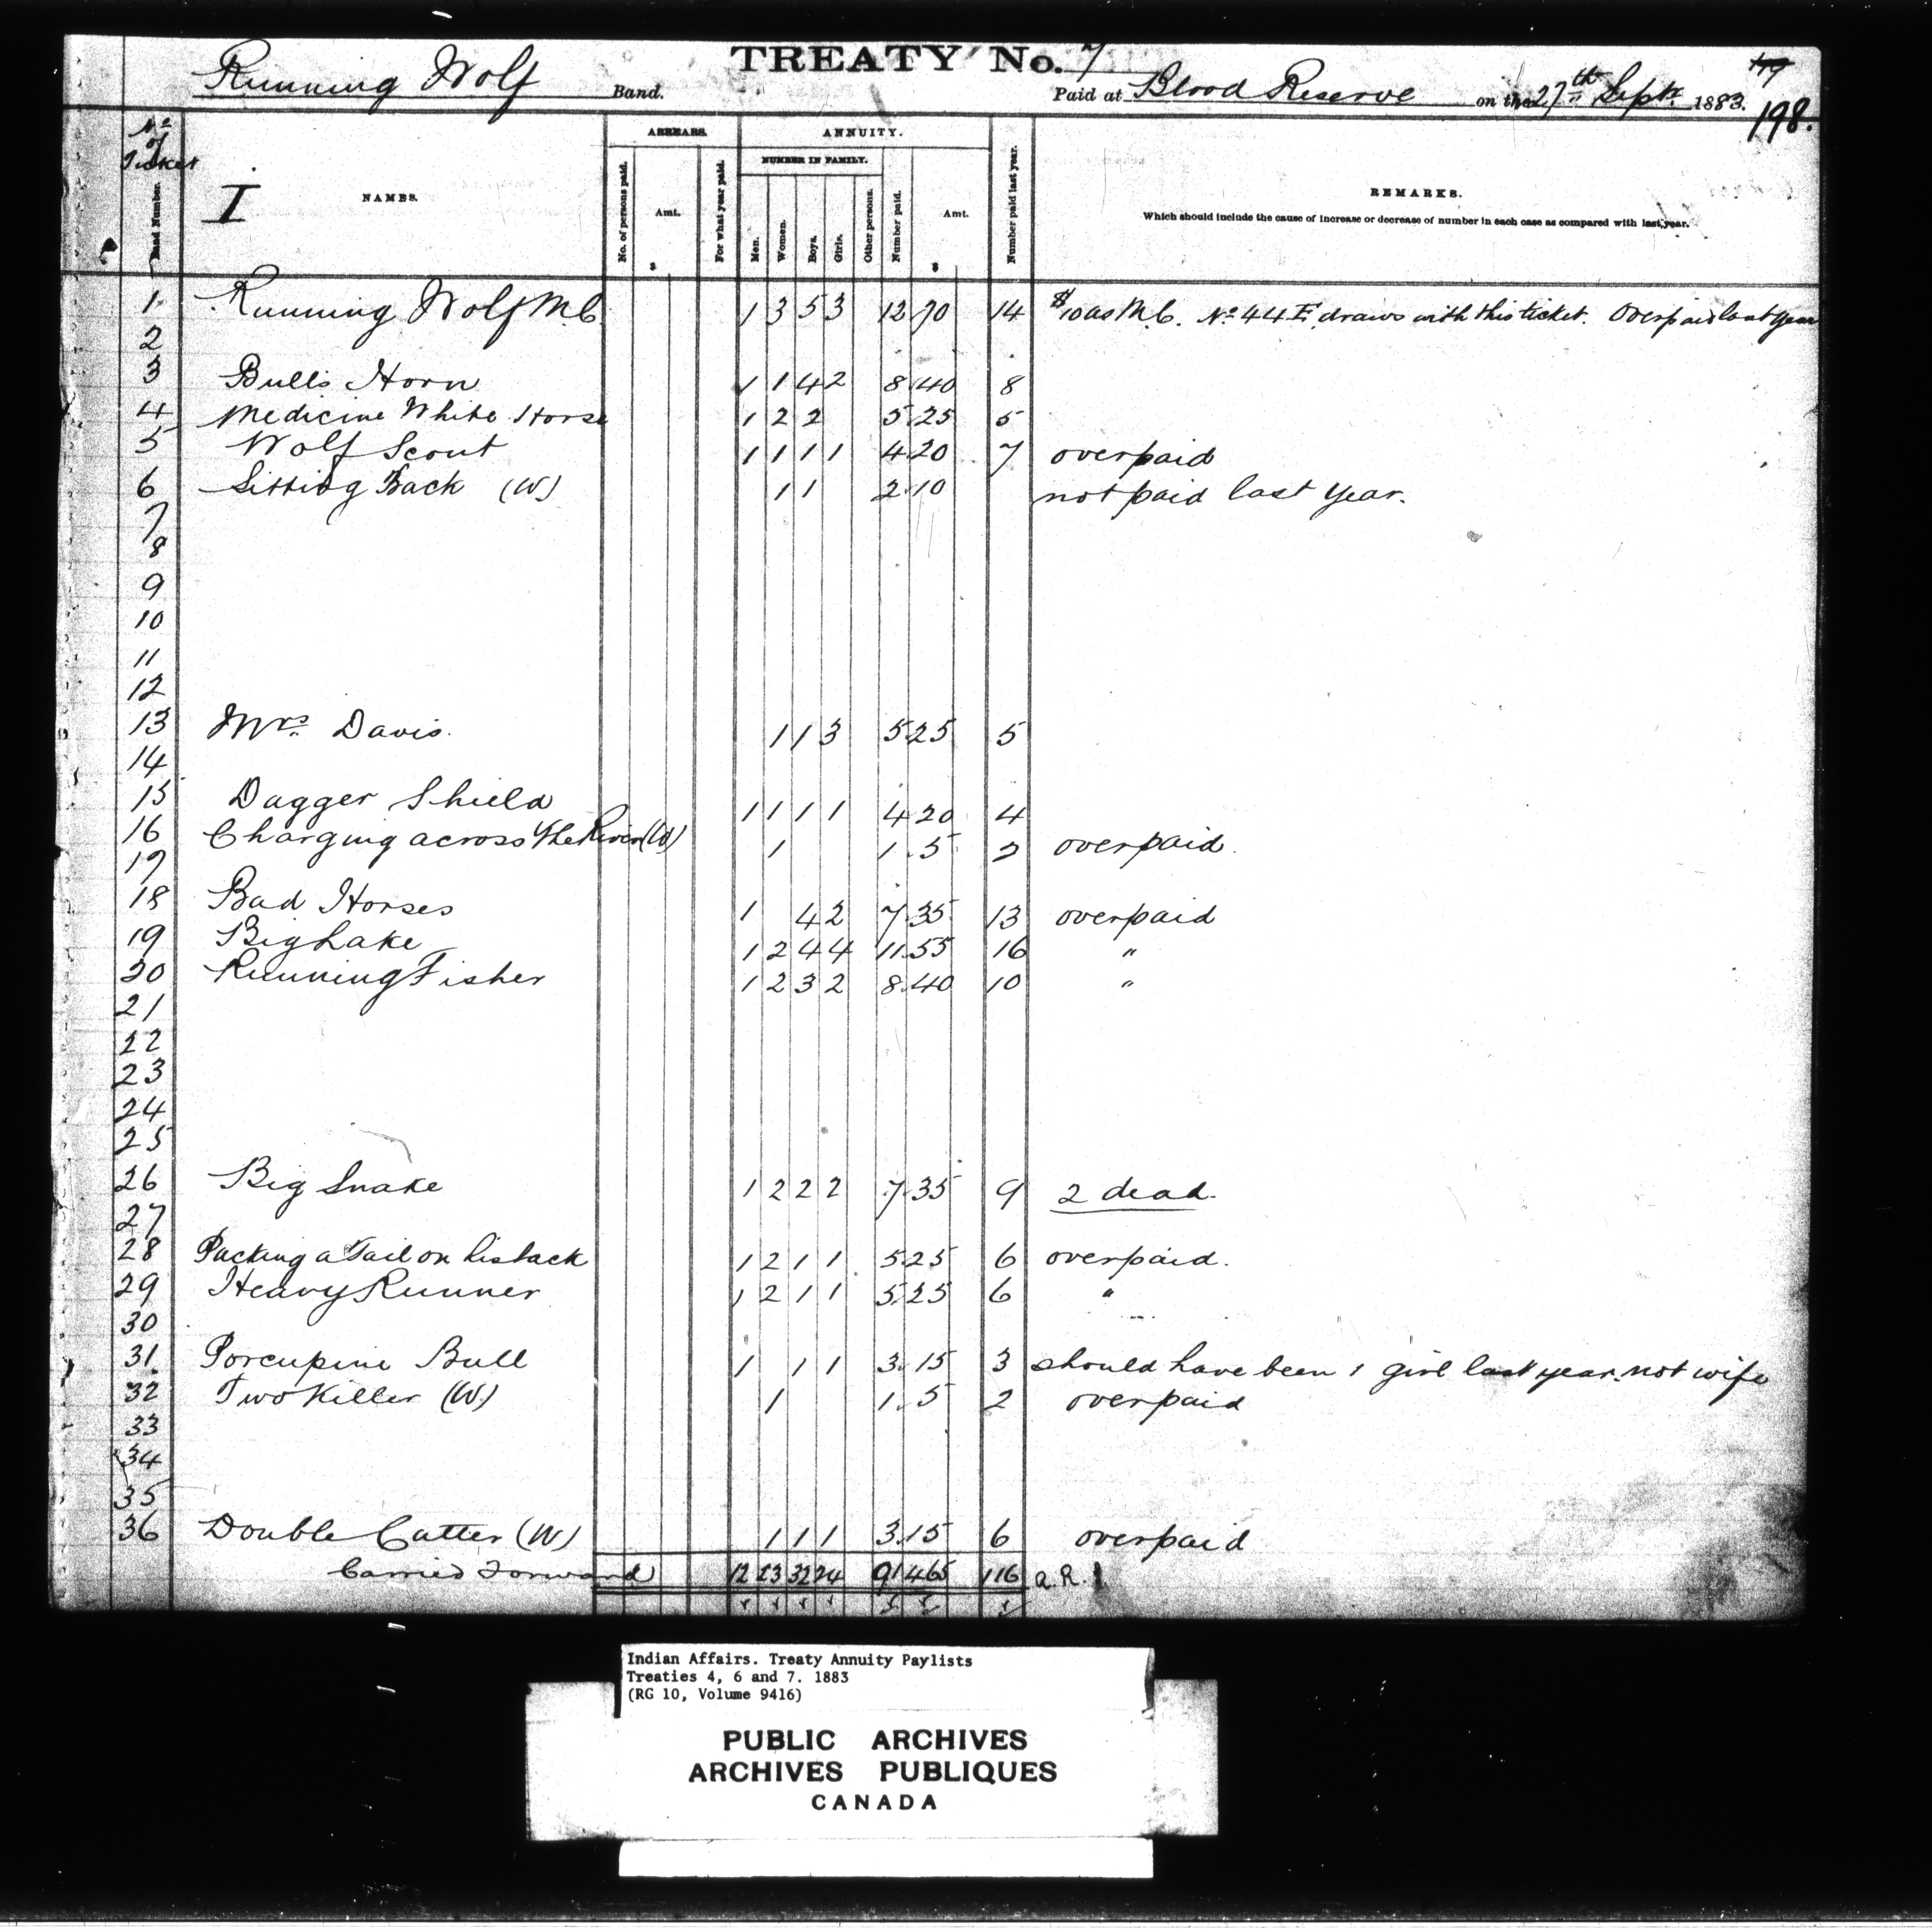 TREATY No. 7
Running Wolf Band. Paid at Blood Reserve on the 27th Sept. 1883. 198.
No of Ticket
Band Number.
I NAMES.
ARREARS.
No. of persons paid. Amt. $ For what year paid.
ANNUITY.
NUMBER IN FAMILY.
Men. Women. Boys. Girls. Other persons. Number paid. Amt. $ Number paid last year.
REMARKS.
Which should include the cause of increase or decrease of number in each case as compared with last year.
1 Running Wolf M.C. 1 3 5 3 12 70 14 $10 as M.C. No 44 E, draws with this ticket. Overpaid last year
2
3 Bulls Horn 1 1 4 2 8 40 8
4 Medicine White Horse 1 2 2 5 25 5
5 Wolf Scout 1 1 1 1 4 20 7 overpaid
6 Sitting Back (W) 1 1 2 10 not paid last year.
7
8
9
10
11
12
13 Mrs. Davis. 1 1 3 5 25 5
14
15 Dagger Shield 1 1 1 1 4 20 4
16 Charging across the River (W) 1 1 5 2 overpaid.
17
18 Bad Horses 1 4 2 7 35 13 overpaid
19 Big Lake 1 2 4 4 11 55 16 "
20 Running Fisher 1 2 3 2 8 40 10 "
21
22
23
24
25
26 Big Snake 1 2 2 2 7 35 9 2 dead.
27
28 Packing a Tail on his back 1 2 1 1 5 25 6 overpaid.
29 Heavy Runner 1 2 1 1 5 25 6 "
30
31 Porcupine Bull 1 1 1 3 15 3 should have been 1 girl last year. not wife
32 Two Killer (W) 1 1 5 2 overpaid
33
34
35
36 Double Catter (W) 1 1 1 3 15 6 overpaid
Carried Forward 12 23 32 24 91 465 116 a.R.
Indian Affairs. Treaty Annuity Paylists
Treaties 4, 6 and 7. 1883
(RG 10, Volume 9416)
PUBLIC ARCHIVES
ARCHIVES PUBLIQUES
CANADA